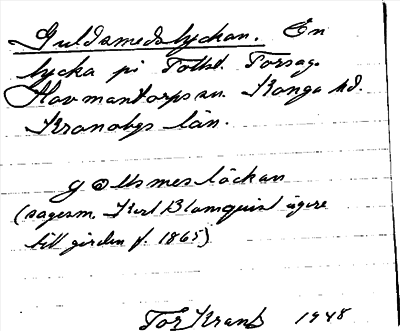 Guldsmedslyckan. En
lycka på Tolkt. Torsag.
Hovmantorps sn. Konga hd.
Kronobgs län.
gollsmeslöckan
(sagesm. Karl Blomquist ägare
till gården f. 1865)
Tor Krantz 1948